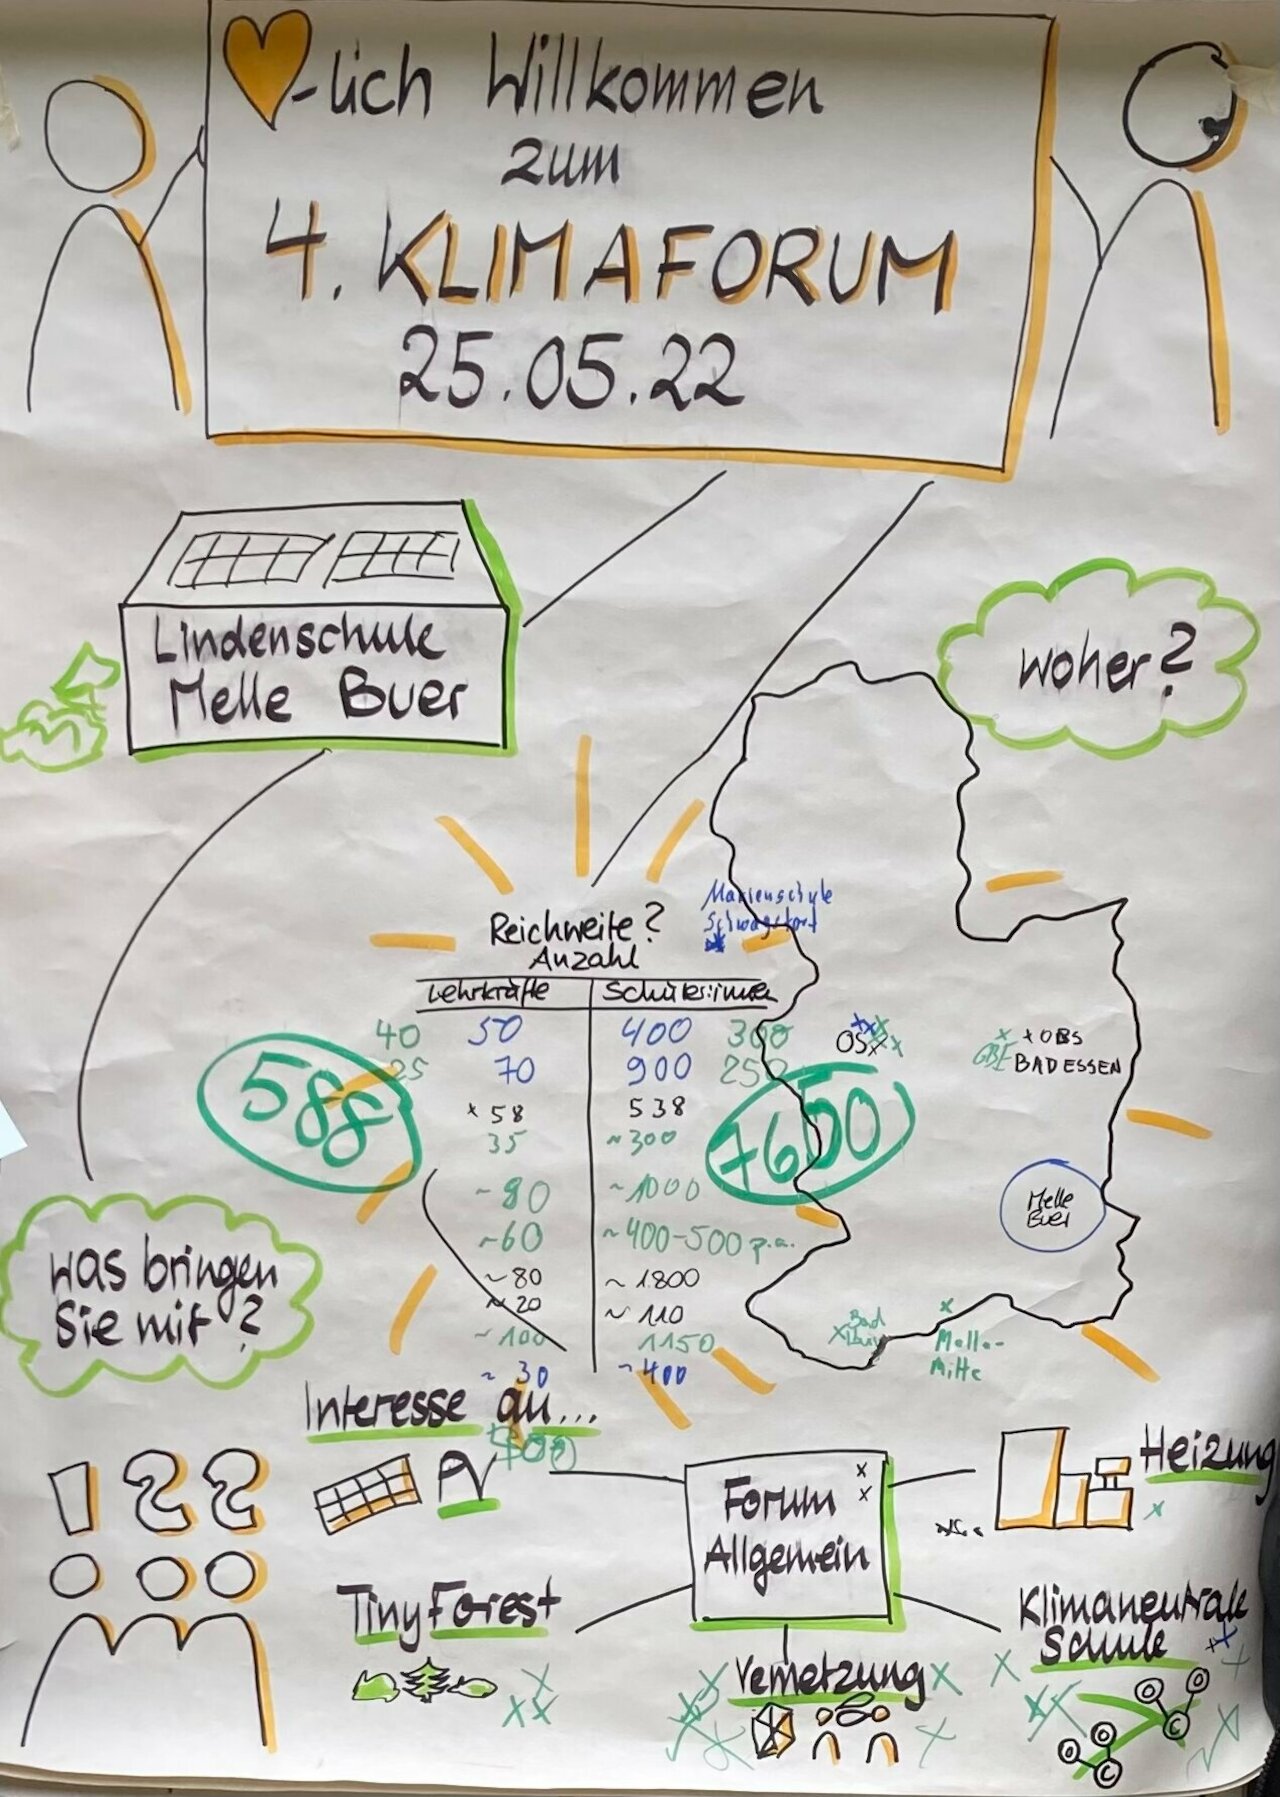 -lich Willkommen
zum
4. KLIMAFORUM
25.05.22
Lindenschule
Melle Buer
woher?
Marienschule
Reichweite?
Anzahl
Lehrkräfte Schüler:innen
40 50 400 300
25 70 900 250
58 538
35 ~300
~80 ~1000
~60 ~400-500 p.a.
~80 ~1800
~20 ~110
~100 1150
~30 ~400
588
7650
OS
x OBS
BAD ESSEN
Melle
Buer
Bad
Melle-
Mitte
Was bringen
Sie mit?
Interesse an...
PV
Forum
Allgemein
Heizung
Tiny Forest
Vernetzung
Klimaneutrale
Schule
O O
C
O O
C